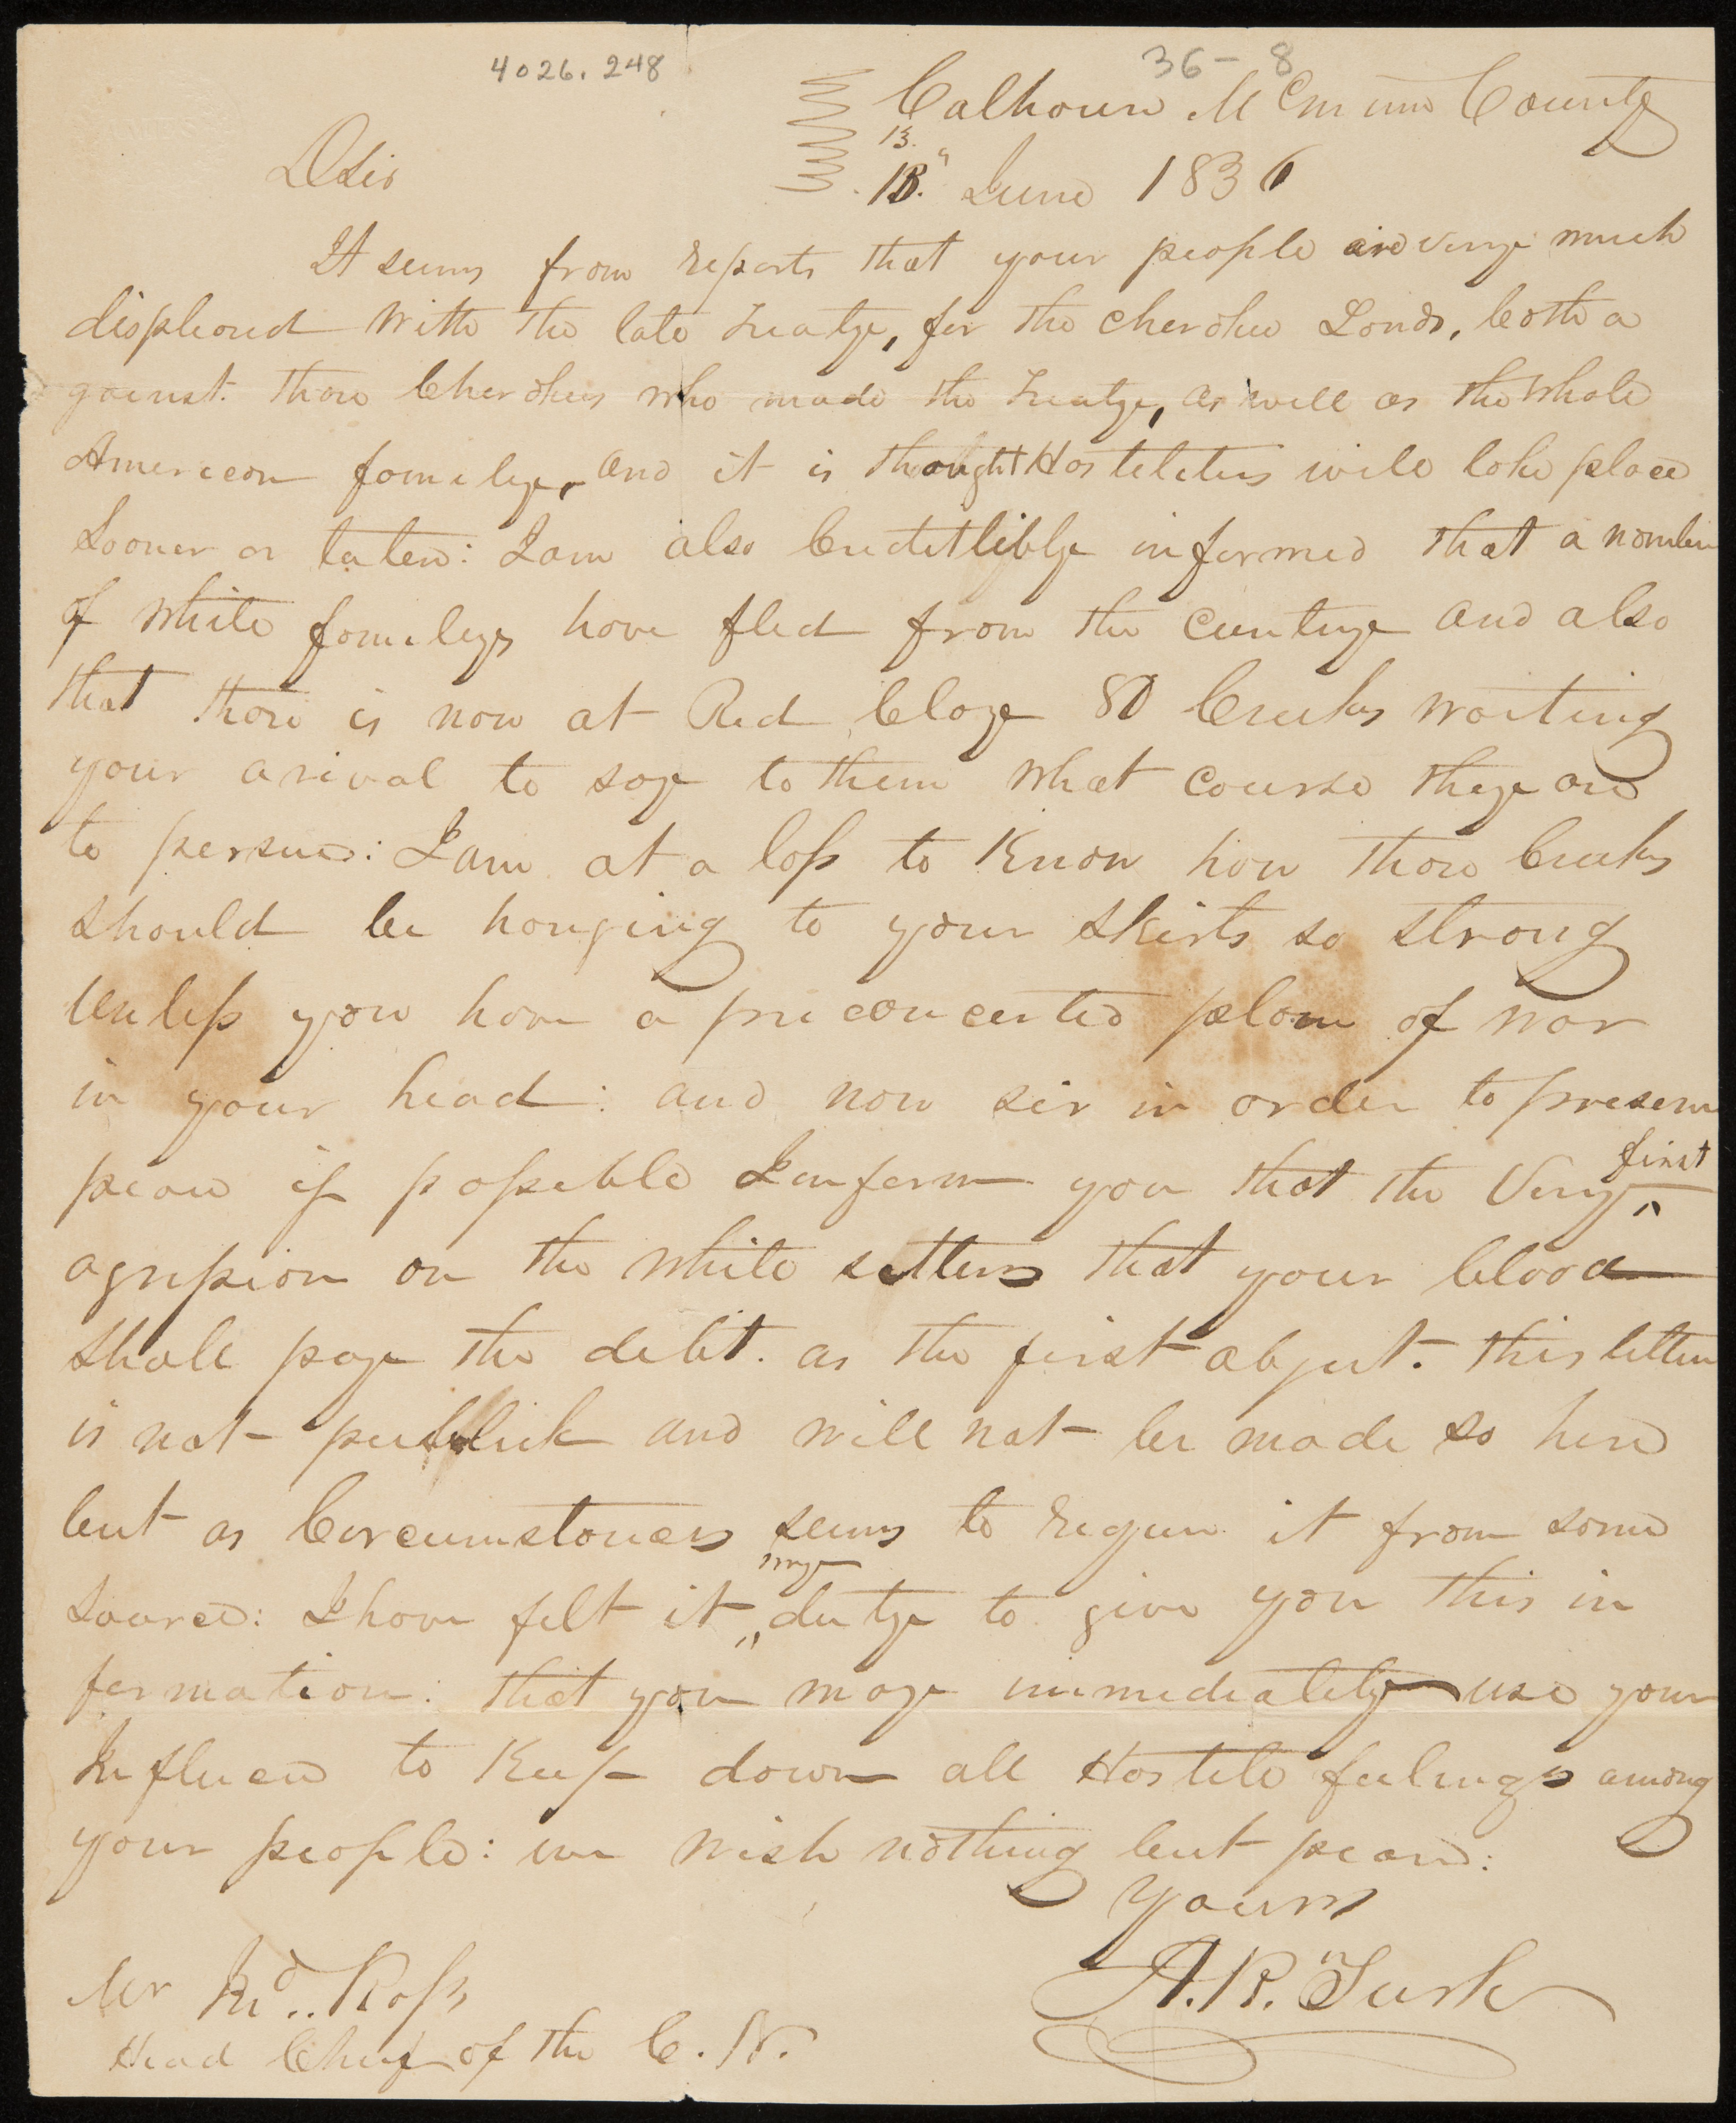 4026.248
36-8
Calhoun McMinn County
13.
13" June 1836
D Sir
It seems from reports that your people are verry much
displeased with the late Treaty, for the Cherokee Lands, both a
gainst those Cherokees who made the Treaty, as well as the whole
American family, and it is thought Hosteleties will take place
Sooner or later: I am also Creditlibly informed that a number
of white familys have fled from the cuntry and also
that there is now at Red Clay 80 Creeks waiting
your arival to say to them what course they are
to persue: I am at a loss to Know how those Creeks
should be hanging to your skirts so strong
Unless you have a preconcerted plan of war
in your head: and now sir in order to preserve
peace if possible I inform you that the very
first
agression on the white settlers that your blood
shall pay the debt. as the first object. this letter
is not publick and will not be made so here
but as Circumstances seems to requir it from some
source: I have felt it my duty to give you this in
formation: that you may immediately use your
Influence to Keep down all Hostile feelings among
your people: we wish nothing but peace:
Yours
A. R. Turk
Mr Jno. Ross
Head Chief of the C. N.